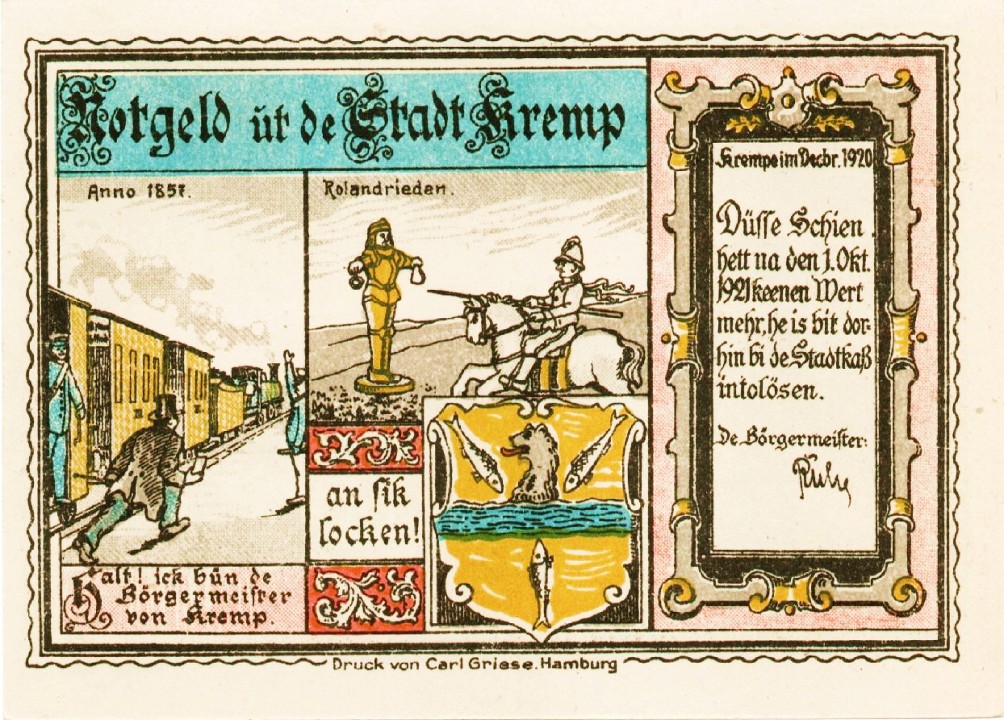 Notgeld út de Stadt Kremp
Anno 1857.
Rolandrieden.
Halt! ick bün de
Börgermeister
von Kremp.
an sik
locken!
Krempe im Decbr. 1920
Düsse Schien
hett na den 1. Okt.
1921 keenen Wert
mehr, he is bit dor-
hin bi de Stadtkaß
intolösen.
De Börgermeister:
Druck von Carl Griese. Hamburg